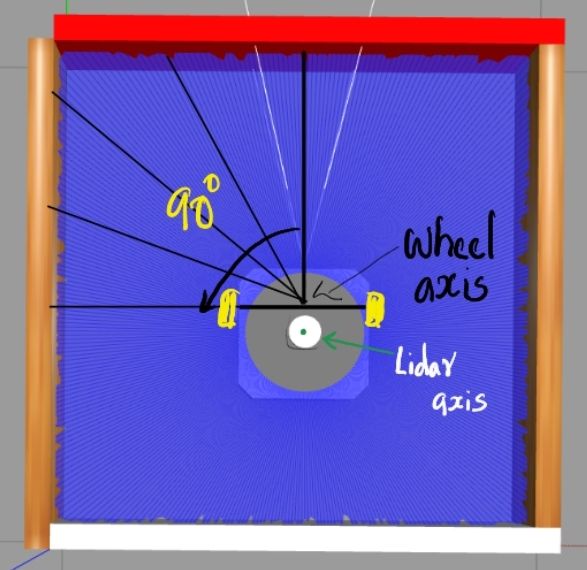 90°
wheel
axis
Lidar
axis